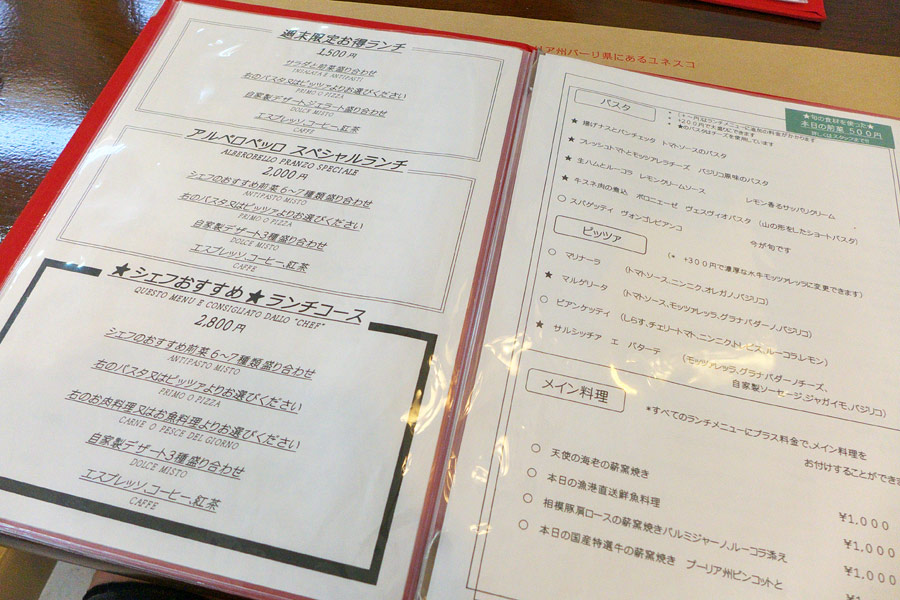 週末限定お得ランチ
1,500円
サラダと前菜盛り合わせ
INSALATA E ANTIPASTI
右のパスタ又はピッツァよりお選びください
PRIMO O PIZZA
自家製デザート、ジェラート盛り合わせ
DOLCE MISTO
エスプレッソ、コーヒー、紅茶
CAFFE
アルベロベッロ スペシャルランチ
ALBEROBELLO PRANZO SPECIALE
2,000円
シェフのおすすめ前菜6~7種類盛り合わせ
ANTIPASTO MISTO
右のパスタ又はピッツァよりお選びください
PRIMO O PIZZA
自家製デザート3種盛り合わせ
DOLCE MISTO
エスプレッソ、コーヒー、紅茶
CAFFE
★シェフおすすめ★ランチコース
QUESTO MENU E CONSIGLIATO DALLO "CHEF"
2,800円
シェフのおすすめ前菜6~7種類盛り合わせ
ANTIPASTO MISTO
右のパスタ又はピッツァよりお選びください
PRIMO O PIZZA
右のお肉料理又はお魚料理よりお選びください
CARNE O PESCE DEL GIORNO
自家製デザート3種盛り合わせ
DOLCE MISTO
エスプレッソ、コーヒー、紅茶
CAFFE
リア州バーリ県にあるユネスコ
パスタ
*(+~円)はランチメニューに追加の料金がかかります
*+200円で大盛りにできます
*★のパスタはチーズを使用しています
★旬の食材を使った★
本日の前菜 500円
詳しくはスタッフまで!!
★ 揚げナスとパンチェッタ トマトソースのパスタ
★ フレッシュトマトとモッツァレラチーズ バジリコ風味のパスタ
★ 生ハムとルーコラ レモンクリームソース
レモン香るサッパリクリーム
★ 牛スネ肉の煮込 ボロニェーゼ ヴェスヴィオパスタ (山の形をしたショートパスタ)
○ スパゲッティ ヴォンゴレビアンコ
今が旬です
ピッツァ
(* +300円で濃厚な水牛モッツァレッラに変更できます)
○ マリナーラ (トマトソース、ニンニク、オレガノ、バジリコ)
★ マルゲリータ (トマトソース、モッツァレッラ、グラナパダーノ、バジリコ)
○ ビアンケッティ (しらす、チェリートマト、ニンニク、トレビス、ルーコラ、レモン)
★ サルシッチァ エ パターテ (モッツァレッラ、グラナパダーノチーズ、
自家製ソーセージ、ジャガイモ、バジリコ)
メイン料理
*すべてのランチメニューにプラス料金で、メイン料理を
お付けすることができ
○ 天使の海老の薪窯焼き ¥1,000
○ 本日の漁港直送鮮魚料理 ¥1,000
○ 相模豚肩ロースの薪窯焼きパルミジャーノ、ルーコラ添え ¥1,000
○ 本日の国産特選牛の薪窯焼き プーリア州ピンコットと